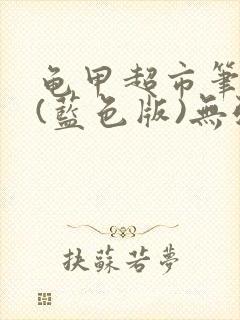 龟甲超市筆
(藍色版)無
扶蘇若夢